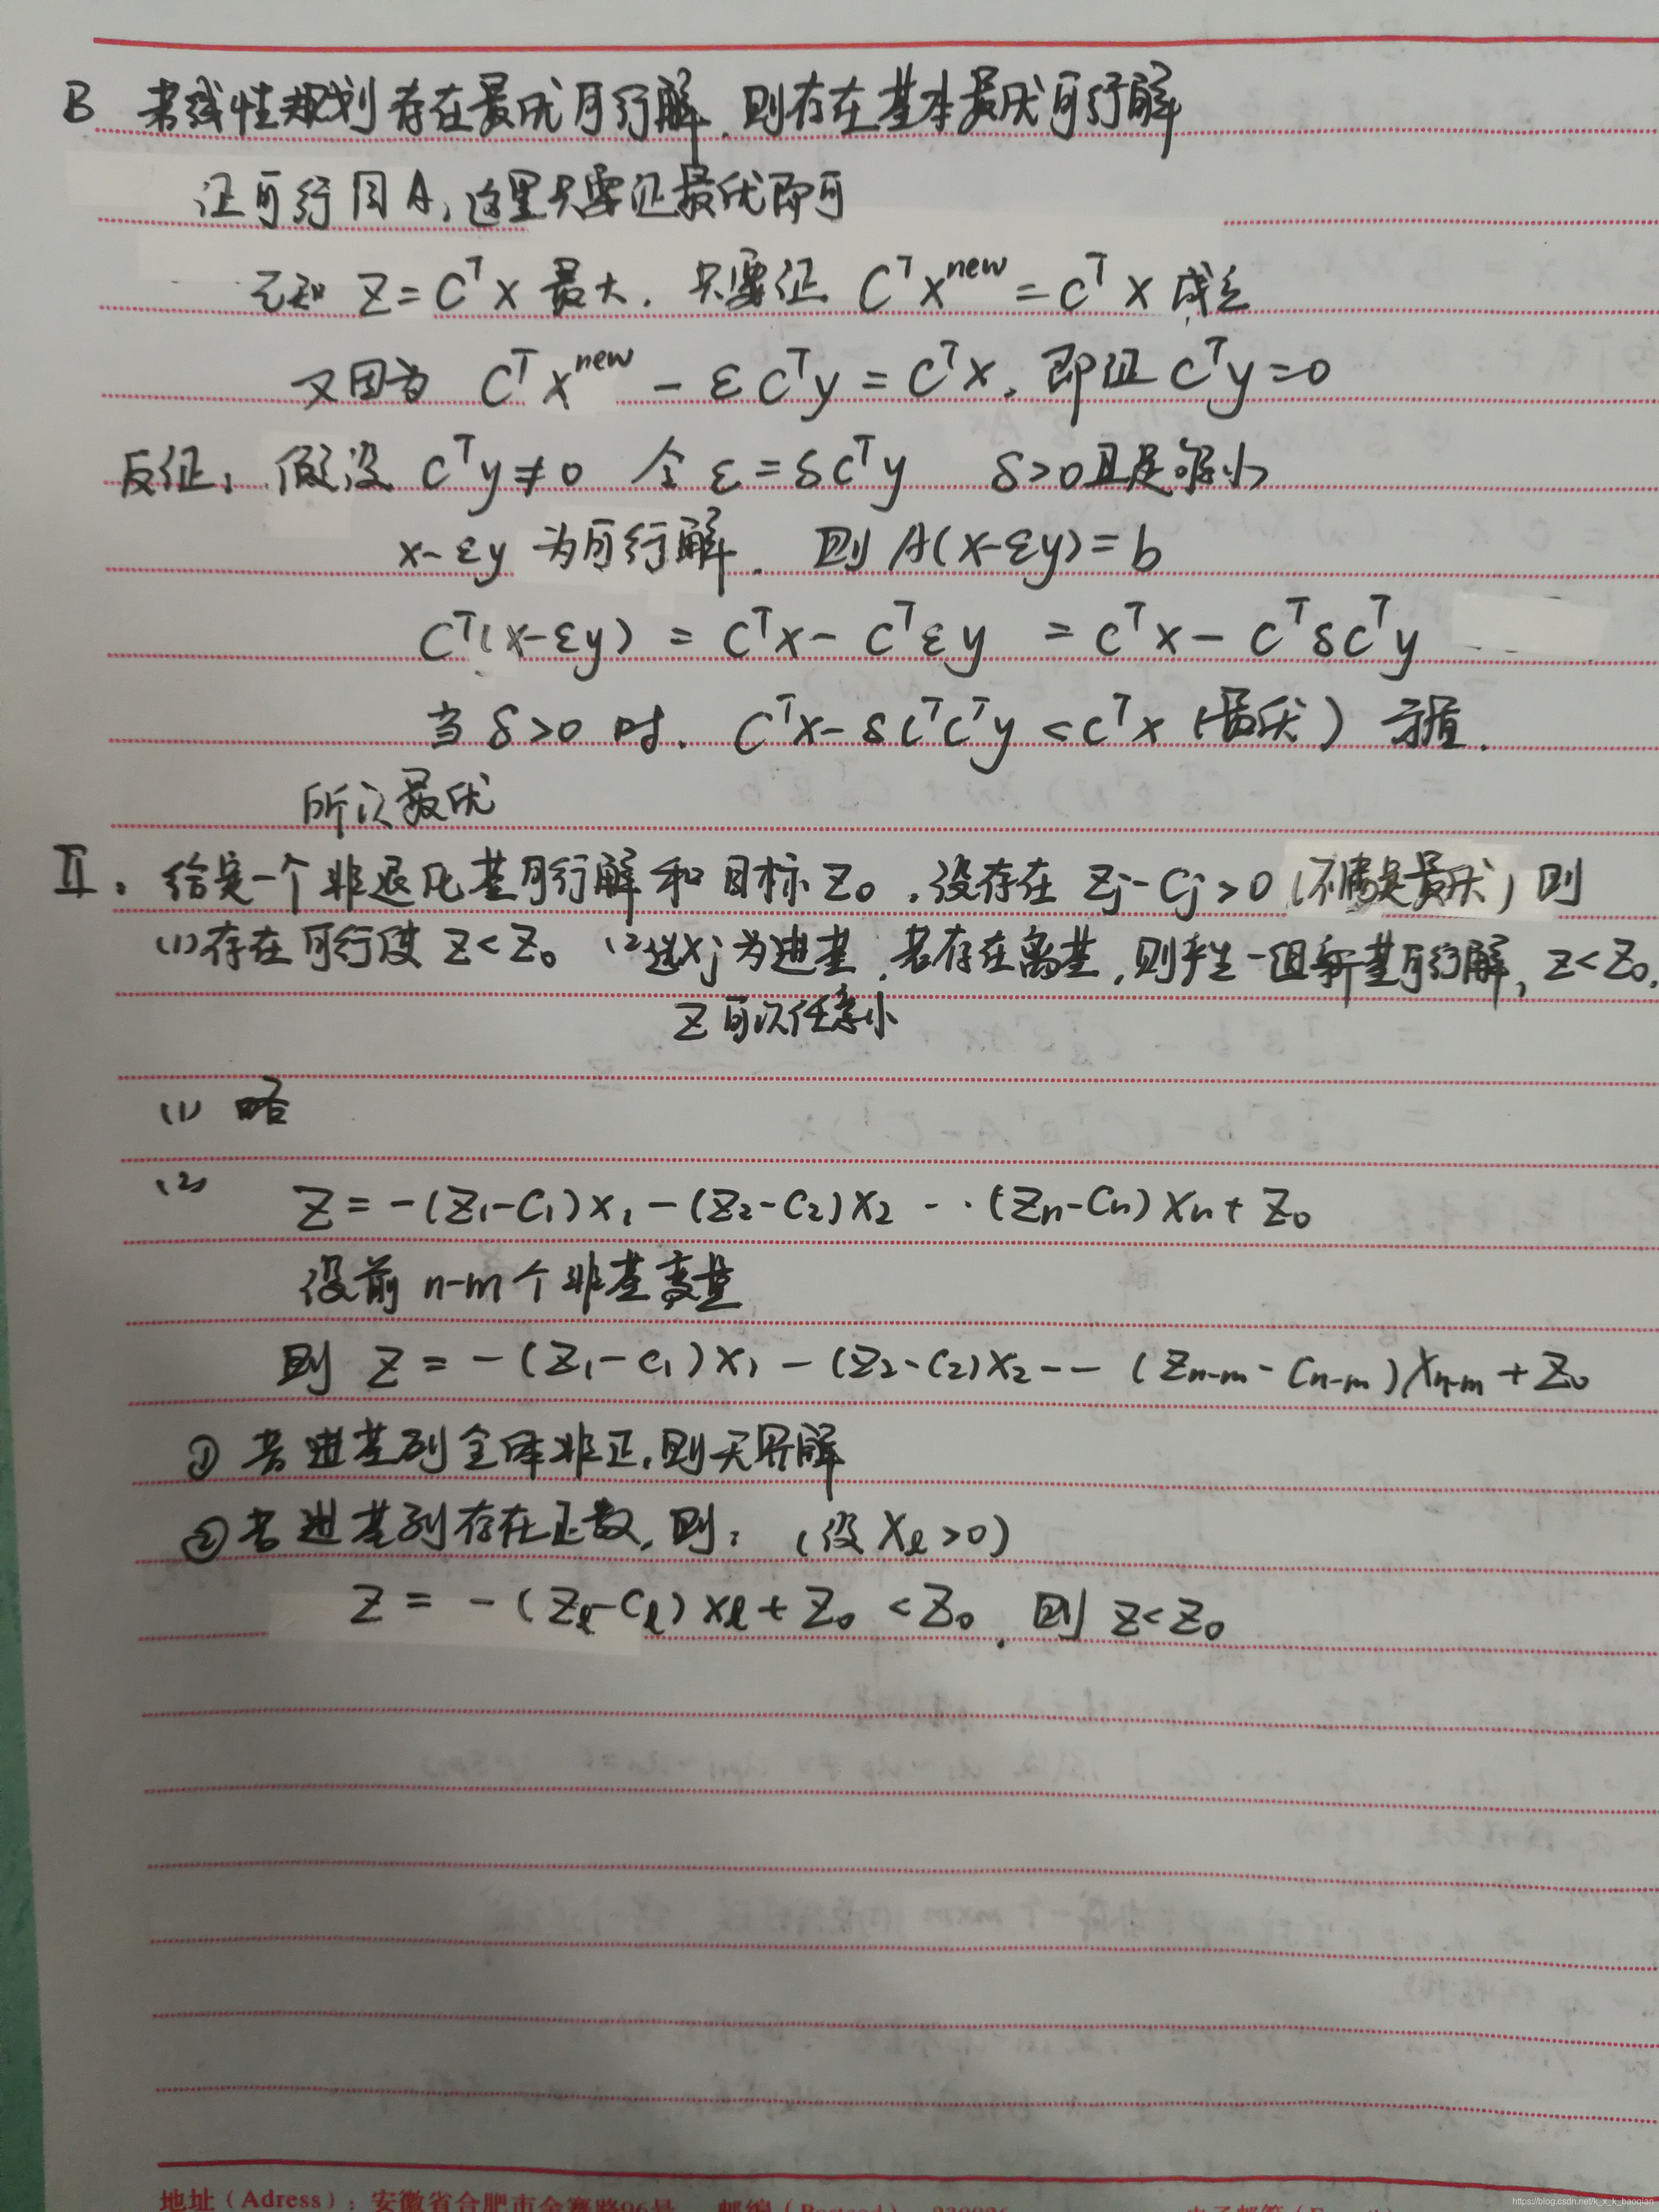 B 若线性规划存在最优可行解,则存在基本最优可行解
证可行同A,这里只要证最优即可
已知 Z=CᵀX 最大. 只要证 CᵀXⁿᵉʷ=CᵀX 成立
又因为 CᵀXⁿᵉʷ-εCᵀy=CᵀX, 即证Cᵀy=0
反证: 假设 Cᵀy≠0 令 ε=δCᵀy δ>0且足够小
X-εy 为可行解. 则 A(X-εy)=b
Cᵀ(X-εy) = CᵀX-Cᵀεy = CᵀX-CᵀδCᵀy
当 δ>0 时. CᵀX-δCᵀCᵀy<CᵀX (最优) 矛盾.
所以最优
Ⅱ. 给定一个非退化基可行解和目标Z₀.设存在 Zj-Cj>0(不满足最优)则
(1)存在可行使 Z<Z₀ (2)选Xj为进基,若存在离基,则产生一组新基可行解,Z<Z₀.
Z可以任意小
(1) 略
(2) Z=-(Z₁-C₁)X₁-(Z₂-C₂)X₂ -··(Zn-Cn)Xn+Z₀
设前 n-m个非基变量
则 Z=-(Z₁-C₁)X₁-(Z₂-C₂)X₂-- (Zn-m-Cn-m)Xn-m+Z₀
① 若进基列全体非正,则无界解
② 若进基列存在正数,则: (设 Xℓ>0)
Z=-(Zℓ-Cℓ)Xℓ+Z₀<Z₀, 则 Z<Z₀
地址(Adress):安徽省合肥市金寨路96号 邮编(Postcod) 230026
https://blog.csdn.net/k_x_k_baoqian